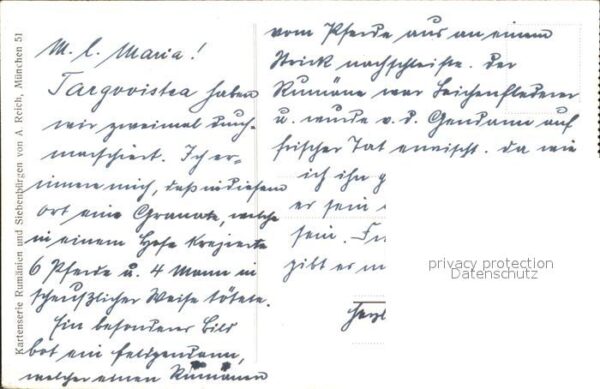 Kartenserie Rumänien und Siebenbürgen von A. Reich, München 51
M. l. Maria!
Targovistea haben
wir zweimal durch-
marschiert. Ich er-
innere mich, daß in diesem
Ort eine Granate, welche
in einem Hofe krepierte
6 Pferde u. 4 Mann in
scheußlicher Weise tötete.
Ein besonderes Bild
bot ein Feldgendarm,
welcher einen Rumänen
vom Pferde aus an einem
Strick nachschleifte. Der
Rumäne war Leichenfledderer
u. wurde v. d. Gendarm auf
frischer Tat erwischt. Da wie
ich ihn g
er sein
sein.
gibt er m
Herzl
privacy protection
Datenschutz